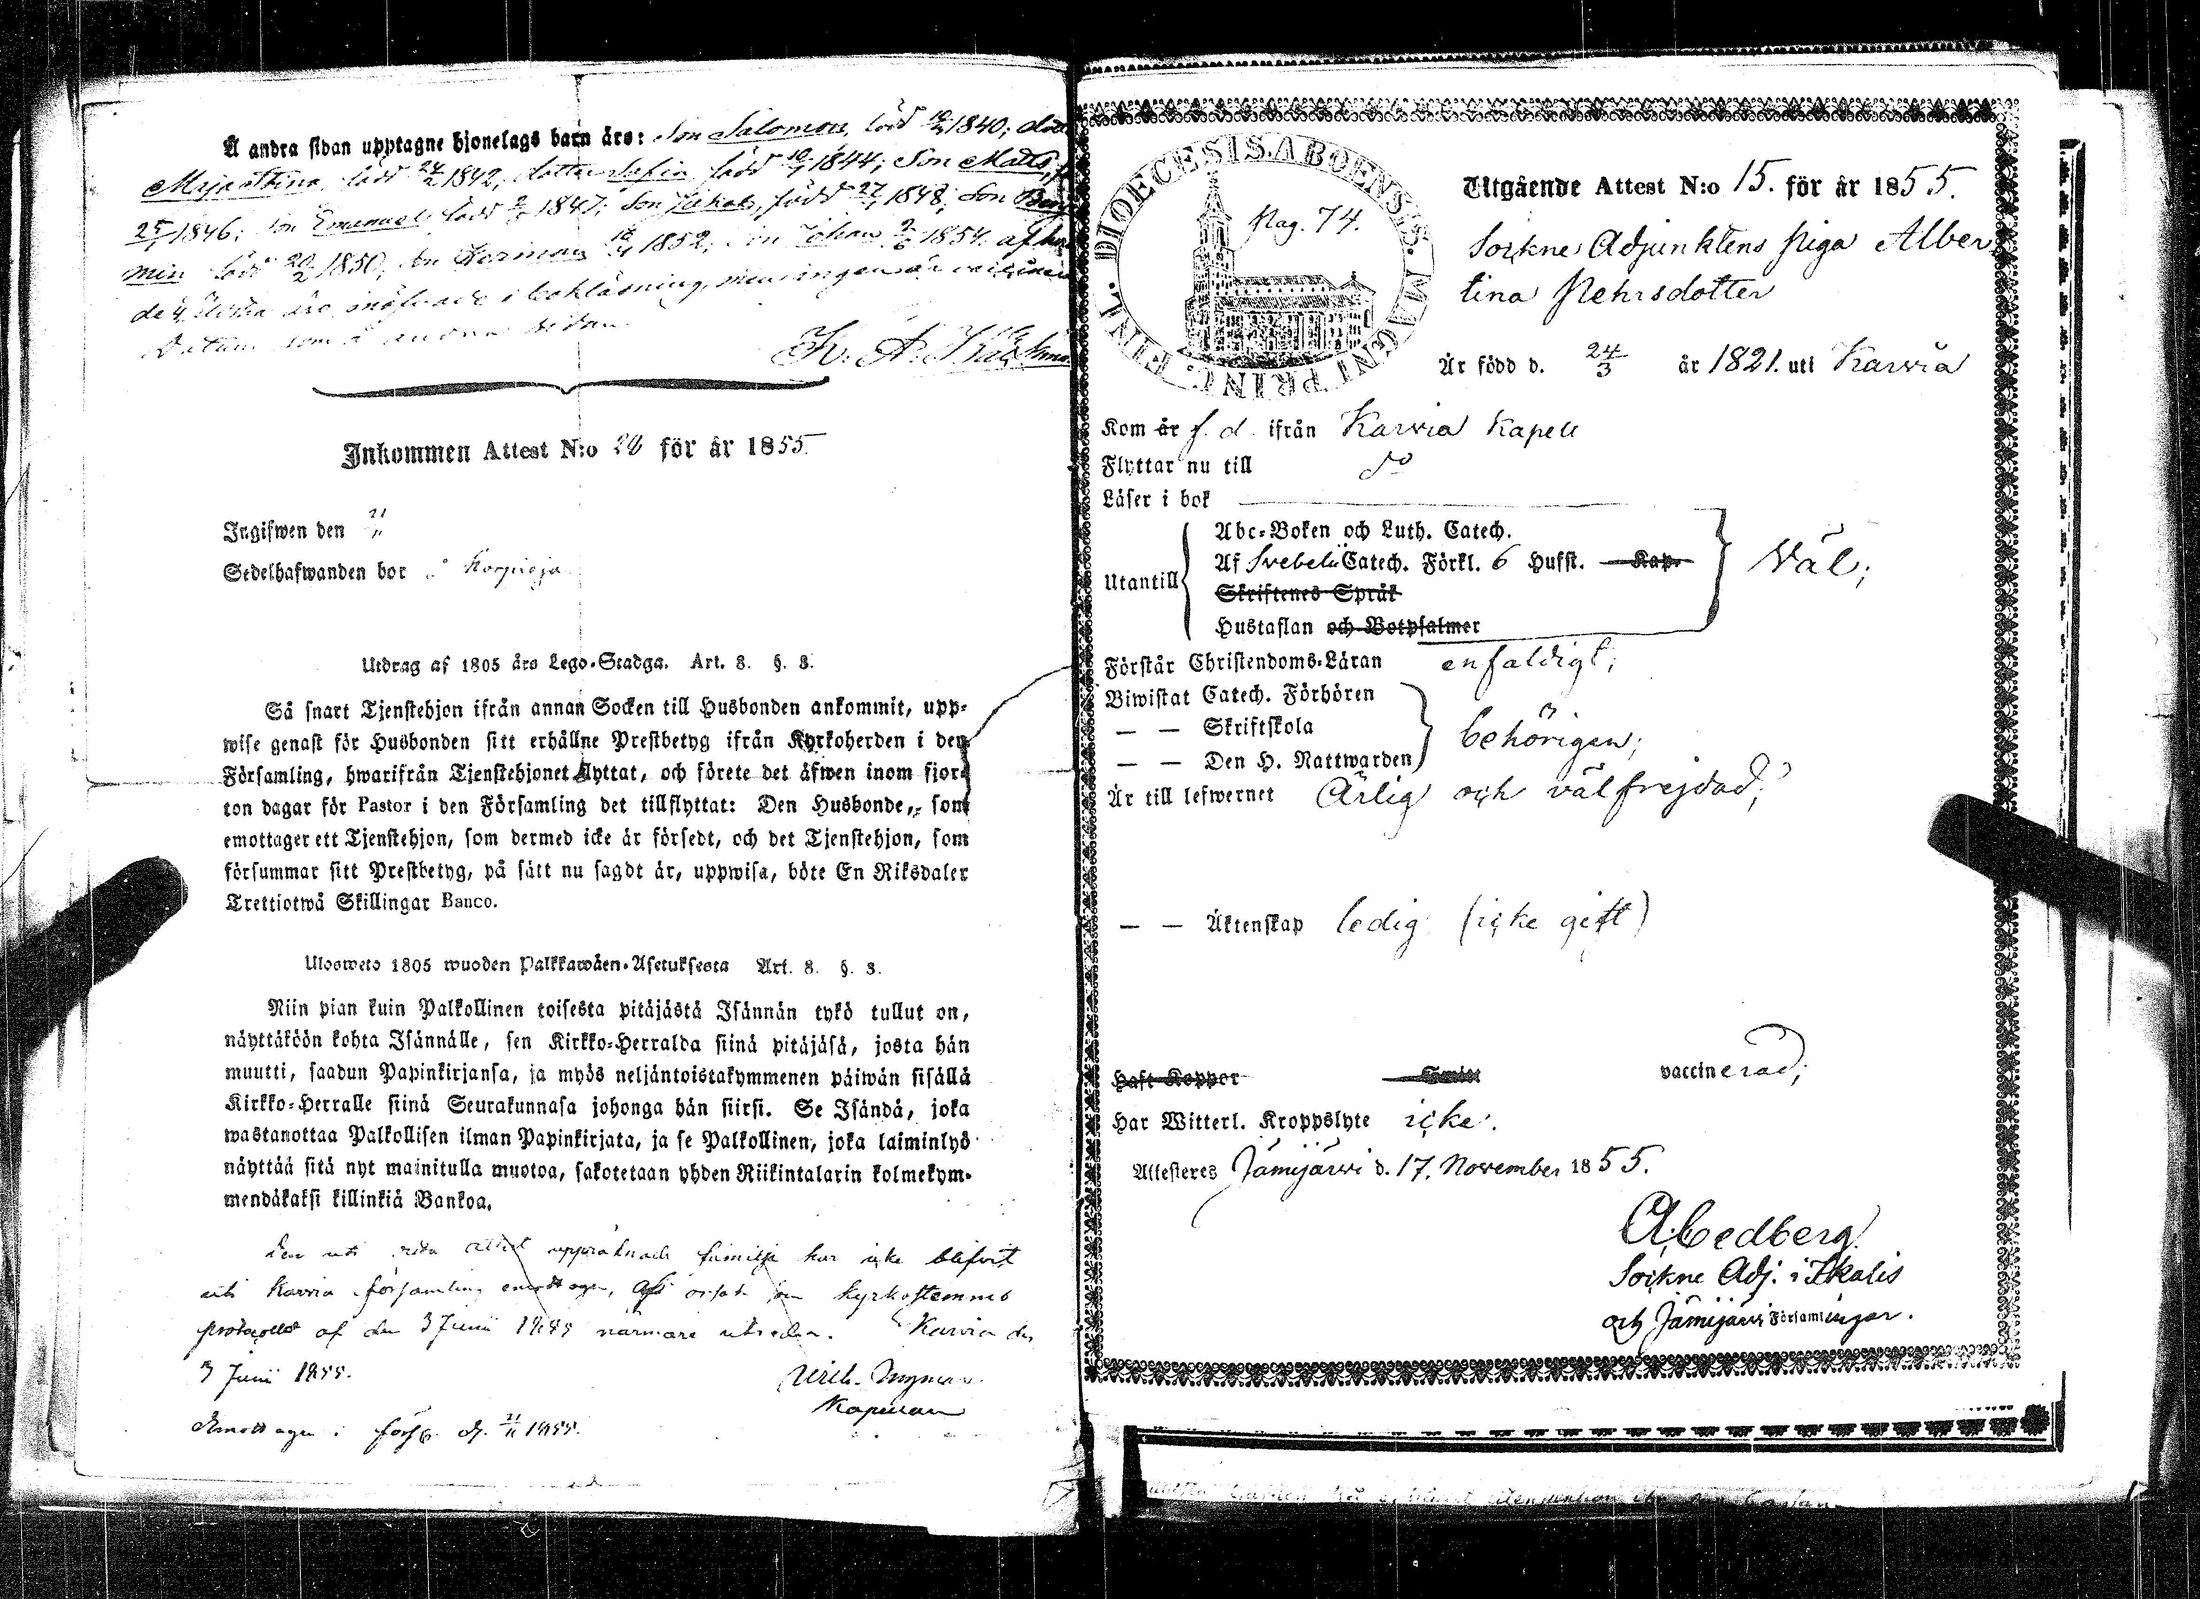 Å andra sidan upptagne hjonelags barn äro: Son Salomon, född 1840;
Maja Stina född 24/2 1842, dotter Sofia född 10/1 1844; Son Matts,
25/1 1846; Son Emanuel född 1847; Son Jakob, född 27/1 1848; Son Ben
min född 20/2 1850, Son Herman 18/4 1852, Son Johan 2/6 1854. af
de 4 äldsta äro inöfvade i bokläsning, men ingen är
Datum som å andra sidan
K. A.
Inkommen Attest N:o 28 för år 1855.
Ingifwen den 21/11
Sedelhafwanden bor å
Utdrag af 1805 års Lego-Stadga. Art. 8. §. 3.
Så snart Tjenstehjon ifrån annan Socken till Husbonden ankommit, upp-
wise genast för Husbonden sitt erhållne Prestbetyg ifrån Kyrkoherden i den
Församling, hwarifrån Tjenstehjonet flyttat, och förete det äfwen inom fjor-
ton dagar för Pastor i den Församling det tillflyttat: Den Husbonde, som
emottager ett Tjenstehjon, som dermed icke är försedt, och det Tjenstehjon, som
försummar sitt Prestbetyg, på sätt nu sagdt är, uppwisa, böte En Riksdaler
Trettiotwå Skillingar Banco.
Ulosweto 1805 wuoden Palkkawäen-Asetuksesta Art. 8. §. 3.
Niin pian kuin Palkollinen toisesta pitäjästä Isännän tykö tullut on,
näyttäköön kohta Isännälle, sen Kirkko-Herralda siinä pitäjäsä, josta hän
muutti, saadun Papinkirjansa, ja myös neljäntoistakymmenen päiwän sisällä
Kirkko-Herralle siinä Seurakunnasa johonga hän siirsi. Se Isändä, joka
wastanottaa Palkollisen ilman Papinkirjata, ja se Palkollinen, joka laiminlyö
näyttää sitä nyt mainitulla muotoa, sakotetaan yhden Riikintalarin kolmekym-
mendäkaksi killinkiä Bankoa.
Den uti detta attest uppräknade familje har icke blifvit
uti Karvia församling emottagen, af orsak som kyrkostemmo
protocollet af den 3 Junii 1855 närmare utreder. Karvia den
3 Junii 1855.
Ulrik Ingman
Kapellan
Emottagen i förs. d. 21/11 1855.
DIOECESIS ABOENSIS. MAGNI PRINC. FINL.
Pag. 74.
Utgående Attest N:o 15. för år 1855.
Sockne Adjunktens Piga Alber
tina Pehrsdotter
Är född d. 24/3 år 1821. uti Karvia
Kom år f. d. ifrån Karvia Kapell
Flyttar nu till do
Läser i bok
Utantill
Abc-Boken och Luth. Catech.
Af Svebelii Catech. Förkl. 6 Hufst. Kap.
Skriftenes Språk
Hustaflan och Botpsalmer
Väl;
Förstår Christendoms-Läran enfaldigt;
Biwistat Catech. Förhören
— — Skriftskola
— — Den H. Nattwarden
behörigen;
Är till lefwernet Ärlig och välfrejdad;
— — Äktenskap ledig (icke gift)
Haft Koppor vaccinerad;
Har Witterl. Kroppslyte icke.
Attesteres Jämijärvi d. 17. November 1855.
A. Cedberg
Sockne Adj. i Ikalis
och Jämijärvi Församlingar.